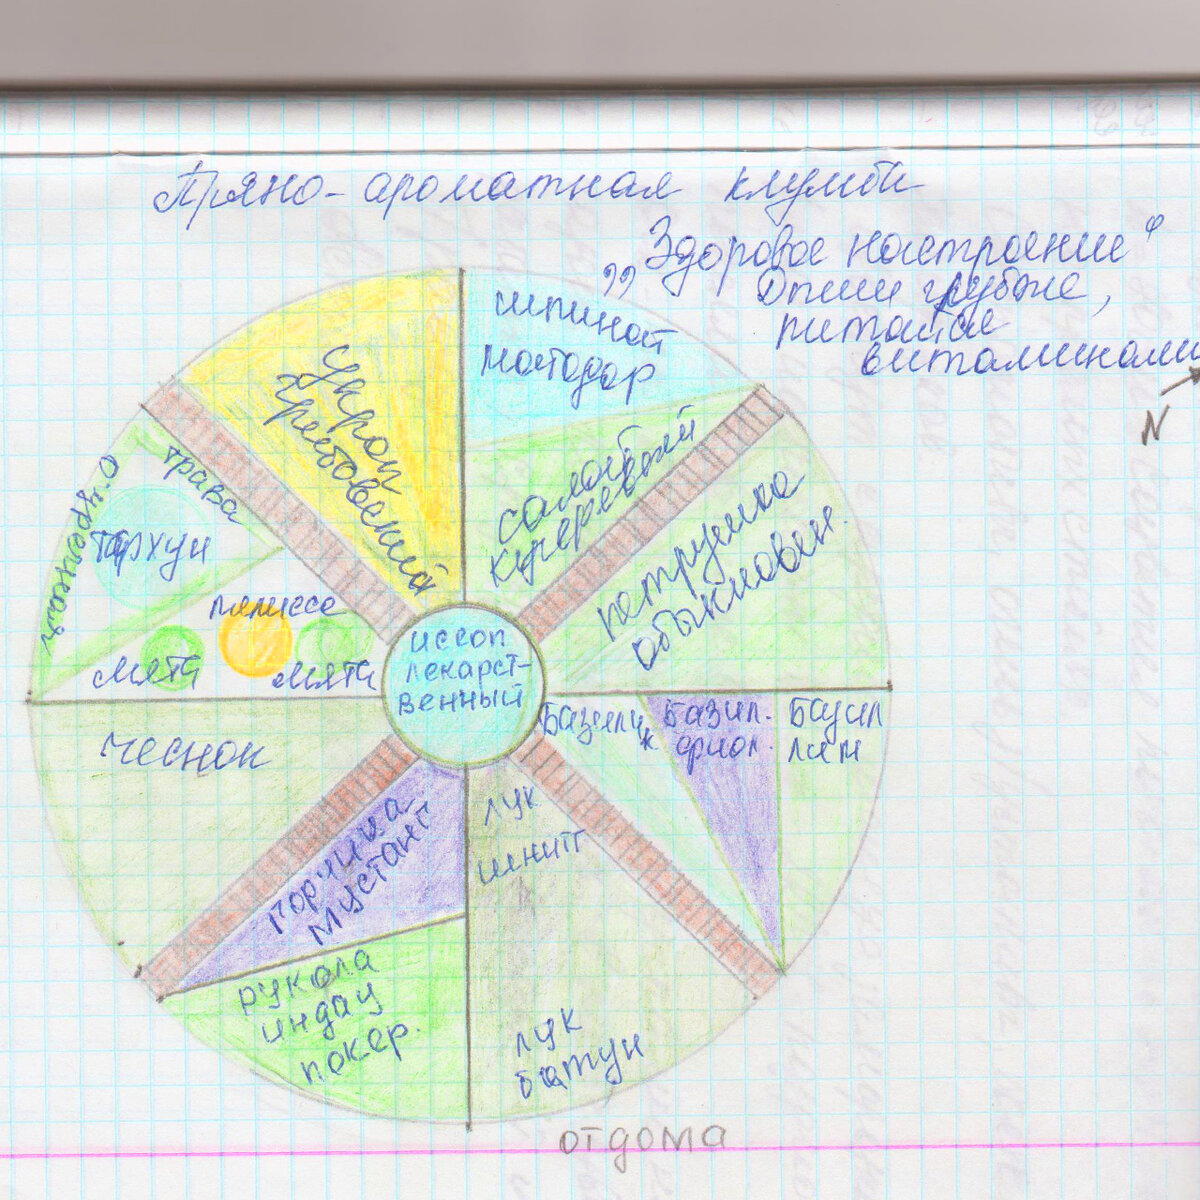 Пряно-ароматная клумба
„Здоровое настроение“
Дыши глубже,
питайся
витаминами
N
шпинат
матодор
укроп
грибовский
салат
кучерявый
петрушка
обыкновен.
трава
огуречная
тархун
мелисса
мята
мята
иссоп
лекарст-
венный
чеснок
Базилик
Базил.
фиол.
Базил
лим
горчица
Мустанг
лук
шнитт
рукола
индау
покер.
лук
батун
от дома